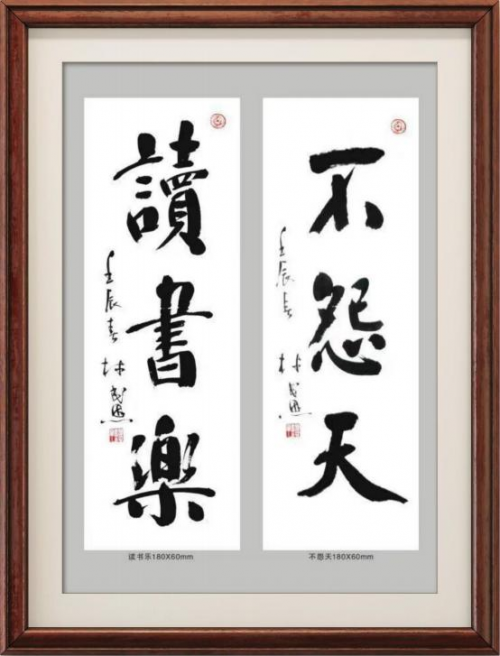 不怨天
壬辰春 林
讀書樂
壬辰春 林
读书乐180X60mm
不怨天180X60mm